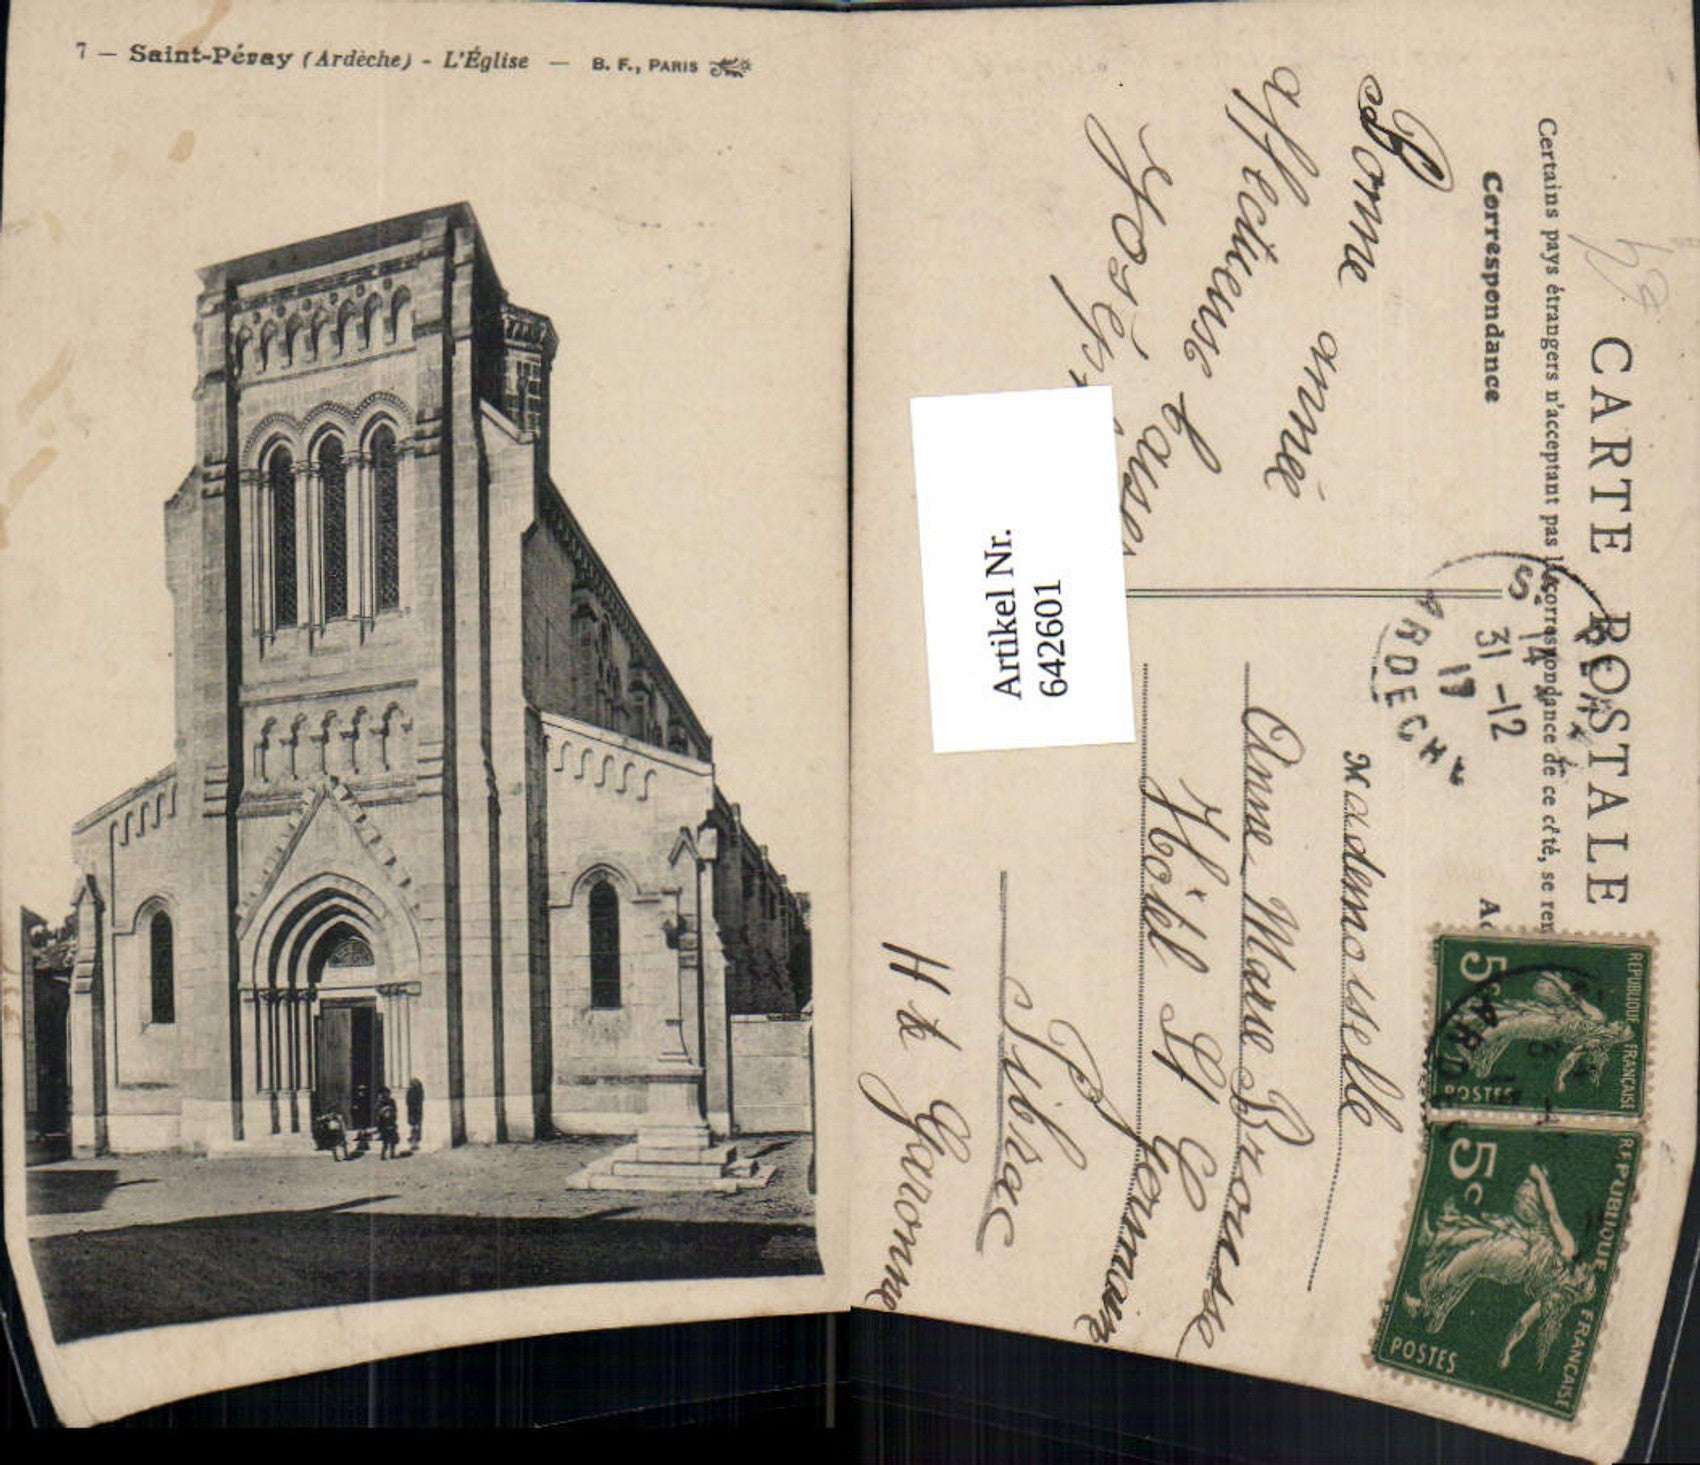 7 — Saint-Péray (Ardèche) - L'Église — B. F., PARIS
CARTE POSTALE
Certains pays étrangers n'acceptant pas la correspondance de ce côté, se ren
Correspondance
Bonne année
affectueuse baises
Artikel Nr.
642601
31 -12
ARDECHE
Mademoiselle
Anne Marie Brousse
Hôtel St Germaine
Pibrac
Hte Garonne
REPUBLIQUE FRANÇAISE
5c
POSTES
REPUBLIQUE FRANÇAISE
5c
POSTES